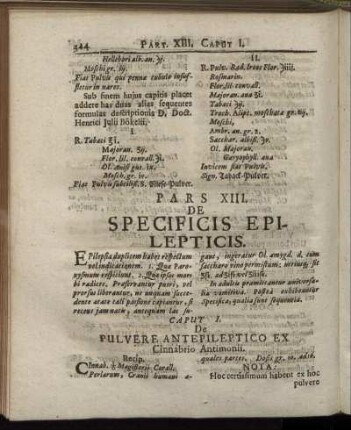 524 PART. XIII. CAPUT I.
Hellebori alb. an. ʒj.
Moschi gr. iij.
Fiat Pulvis qui penna tubulo insuf-
fletur in nares.
Sub finem hujus capitis placet
addere has duas alias sequentes
formulas descriptionis D. Doct.
Henrici Julii Bökelii.
I.
R. Tabaci
Majoran.
Flor. lil. convall.
Ol. Anisi
Mosch. gr.
Fiat Pulvis subtiliss. S. Niese-Pulver.
II.
R. Pulv. Rad. Ireos Flor.
Rosmarin.
Flor. lil. convall.
Majoran. ana
Tabaci
Troch. Alipt. moschata gr.
Moschi,
Ambr. an. gr.
Sacchar. albiss.
Ol. Majoran.
Garyophyll. ana
Invicem fiat Pulvis.
Sign. Tabac-Pulver.
PARS XIII.
DE
SPECIFICIS EPI-
LEPTICIS.
Epilepsia duplicem habet respectum
vel indicationem. 1. Quæ Paro-
xysmum respiciunt. 2. Quæ ipsos mor-
bi radices. Præservantur pueri, vel
prorsus liberantur, ne unquam succe-
dente ætate tali passione capiantur, si
recens jam natis, antequam lac su-
gant, ingeratur Ol. amygd. d. cum
saccharo
In adultis præmittantur universa-
lia
Specifica, qualia sunt sequentia.
CAPUT I.
De
PULVERE ANTEPILEPTICO EX
Cinnabrio Antimonii.
Recip.
Cinnab. ☿ Magisterii Corall.
Perlarum, Cranii humani a-
quales partes. Dosis gr.
NOTA:
Hoc certissimum habent ex hoc
pulvere